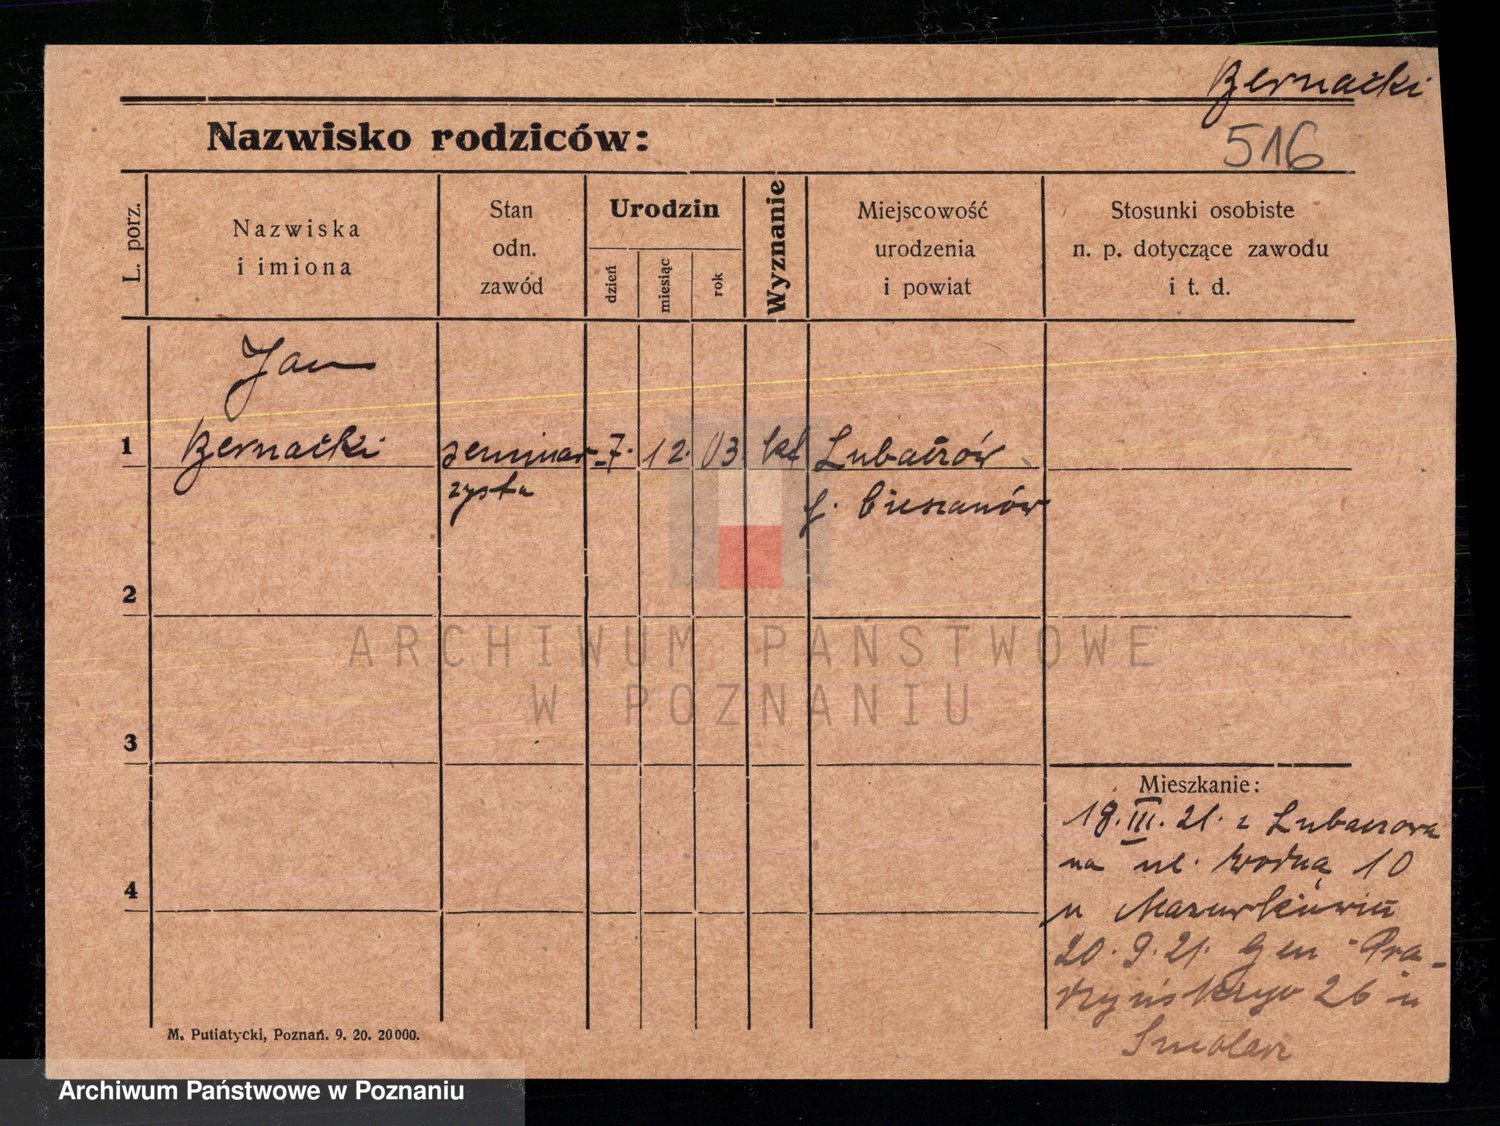 Bernacki
516
Nazwisko rodziców:
L. porz.
Nazwiska
i imiona
Stan
odn.
zawód
Urodzin
dzień
miesiąc
rok
Wyznanie
Miejscowość
urodzenia
i powiat
Stosunki osobiste
n. p. dotyczące zawodu
i t. d.
Jan
1 Bernacki seminar- 7. 12. 03 kt Lubaczów
zysta p. Cieszanów
2
ARCHIWUM PAŃSTWOWE
W POZNANIU
3
Mieszkanie:
18. III. 21. z Lubaczowa
na ul. Wodną 10
4
u
20. 9. 21. Gen. Prą-
dzyńskiego 26 u
Smolarz
M. Putiatycki, Poznań. 9. 20. 20000.
Archiwum Państwowe w Poznaniu